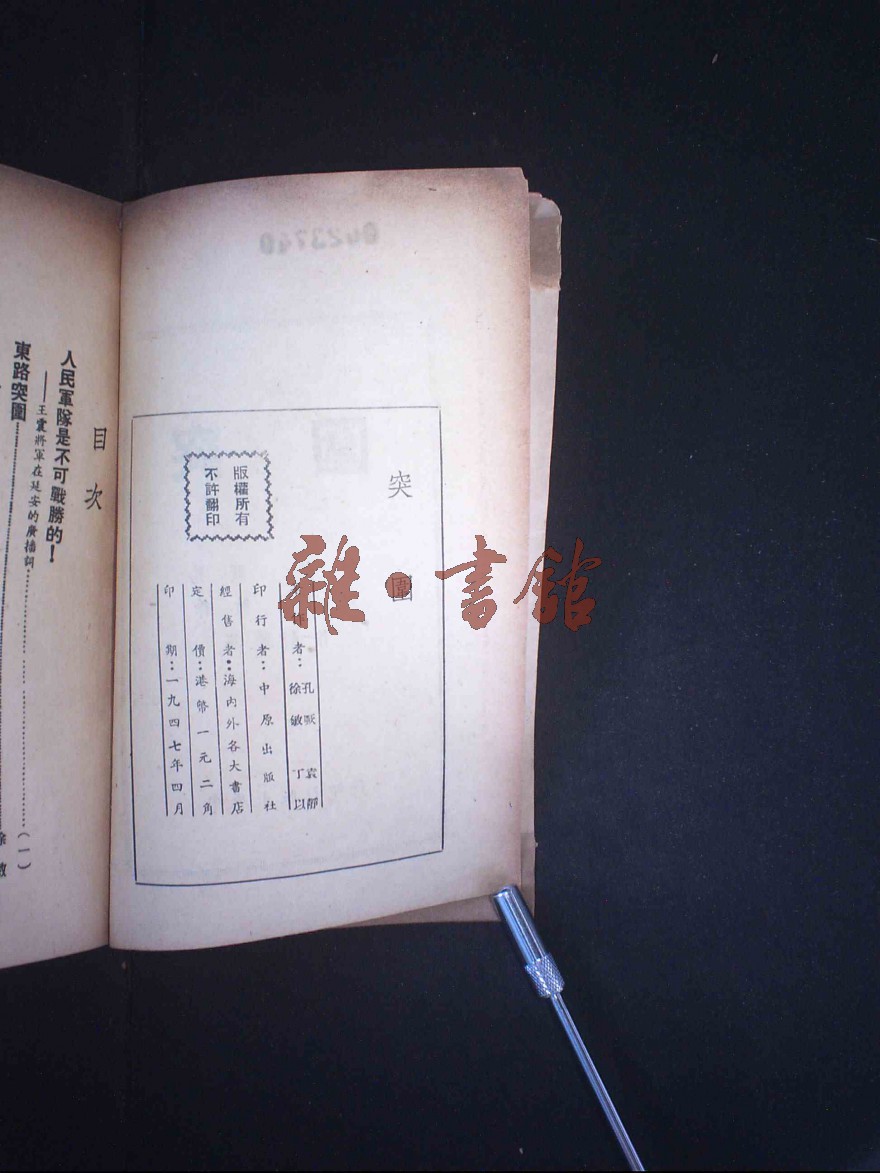 突圍
著作者：孔厥 袁靜
徐敏 丁以
印行者：中原出版社
經售者：海內外各大書店
定價：港幣一元二角
印期：一九四七年四月
版權所有
不許翻印
目次
人民軍隊是不可戰勝的！
——王震將軍在延安的廣播詞（一）
東路突圍
徐敏
雜·書館
0423740